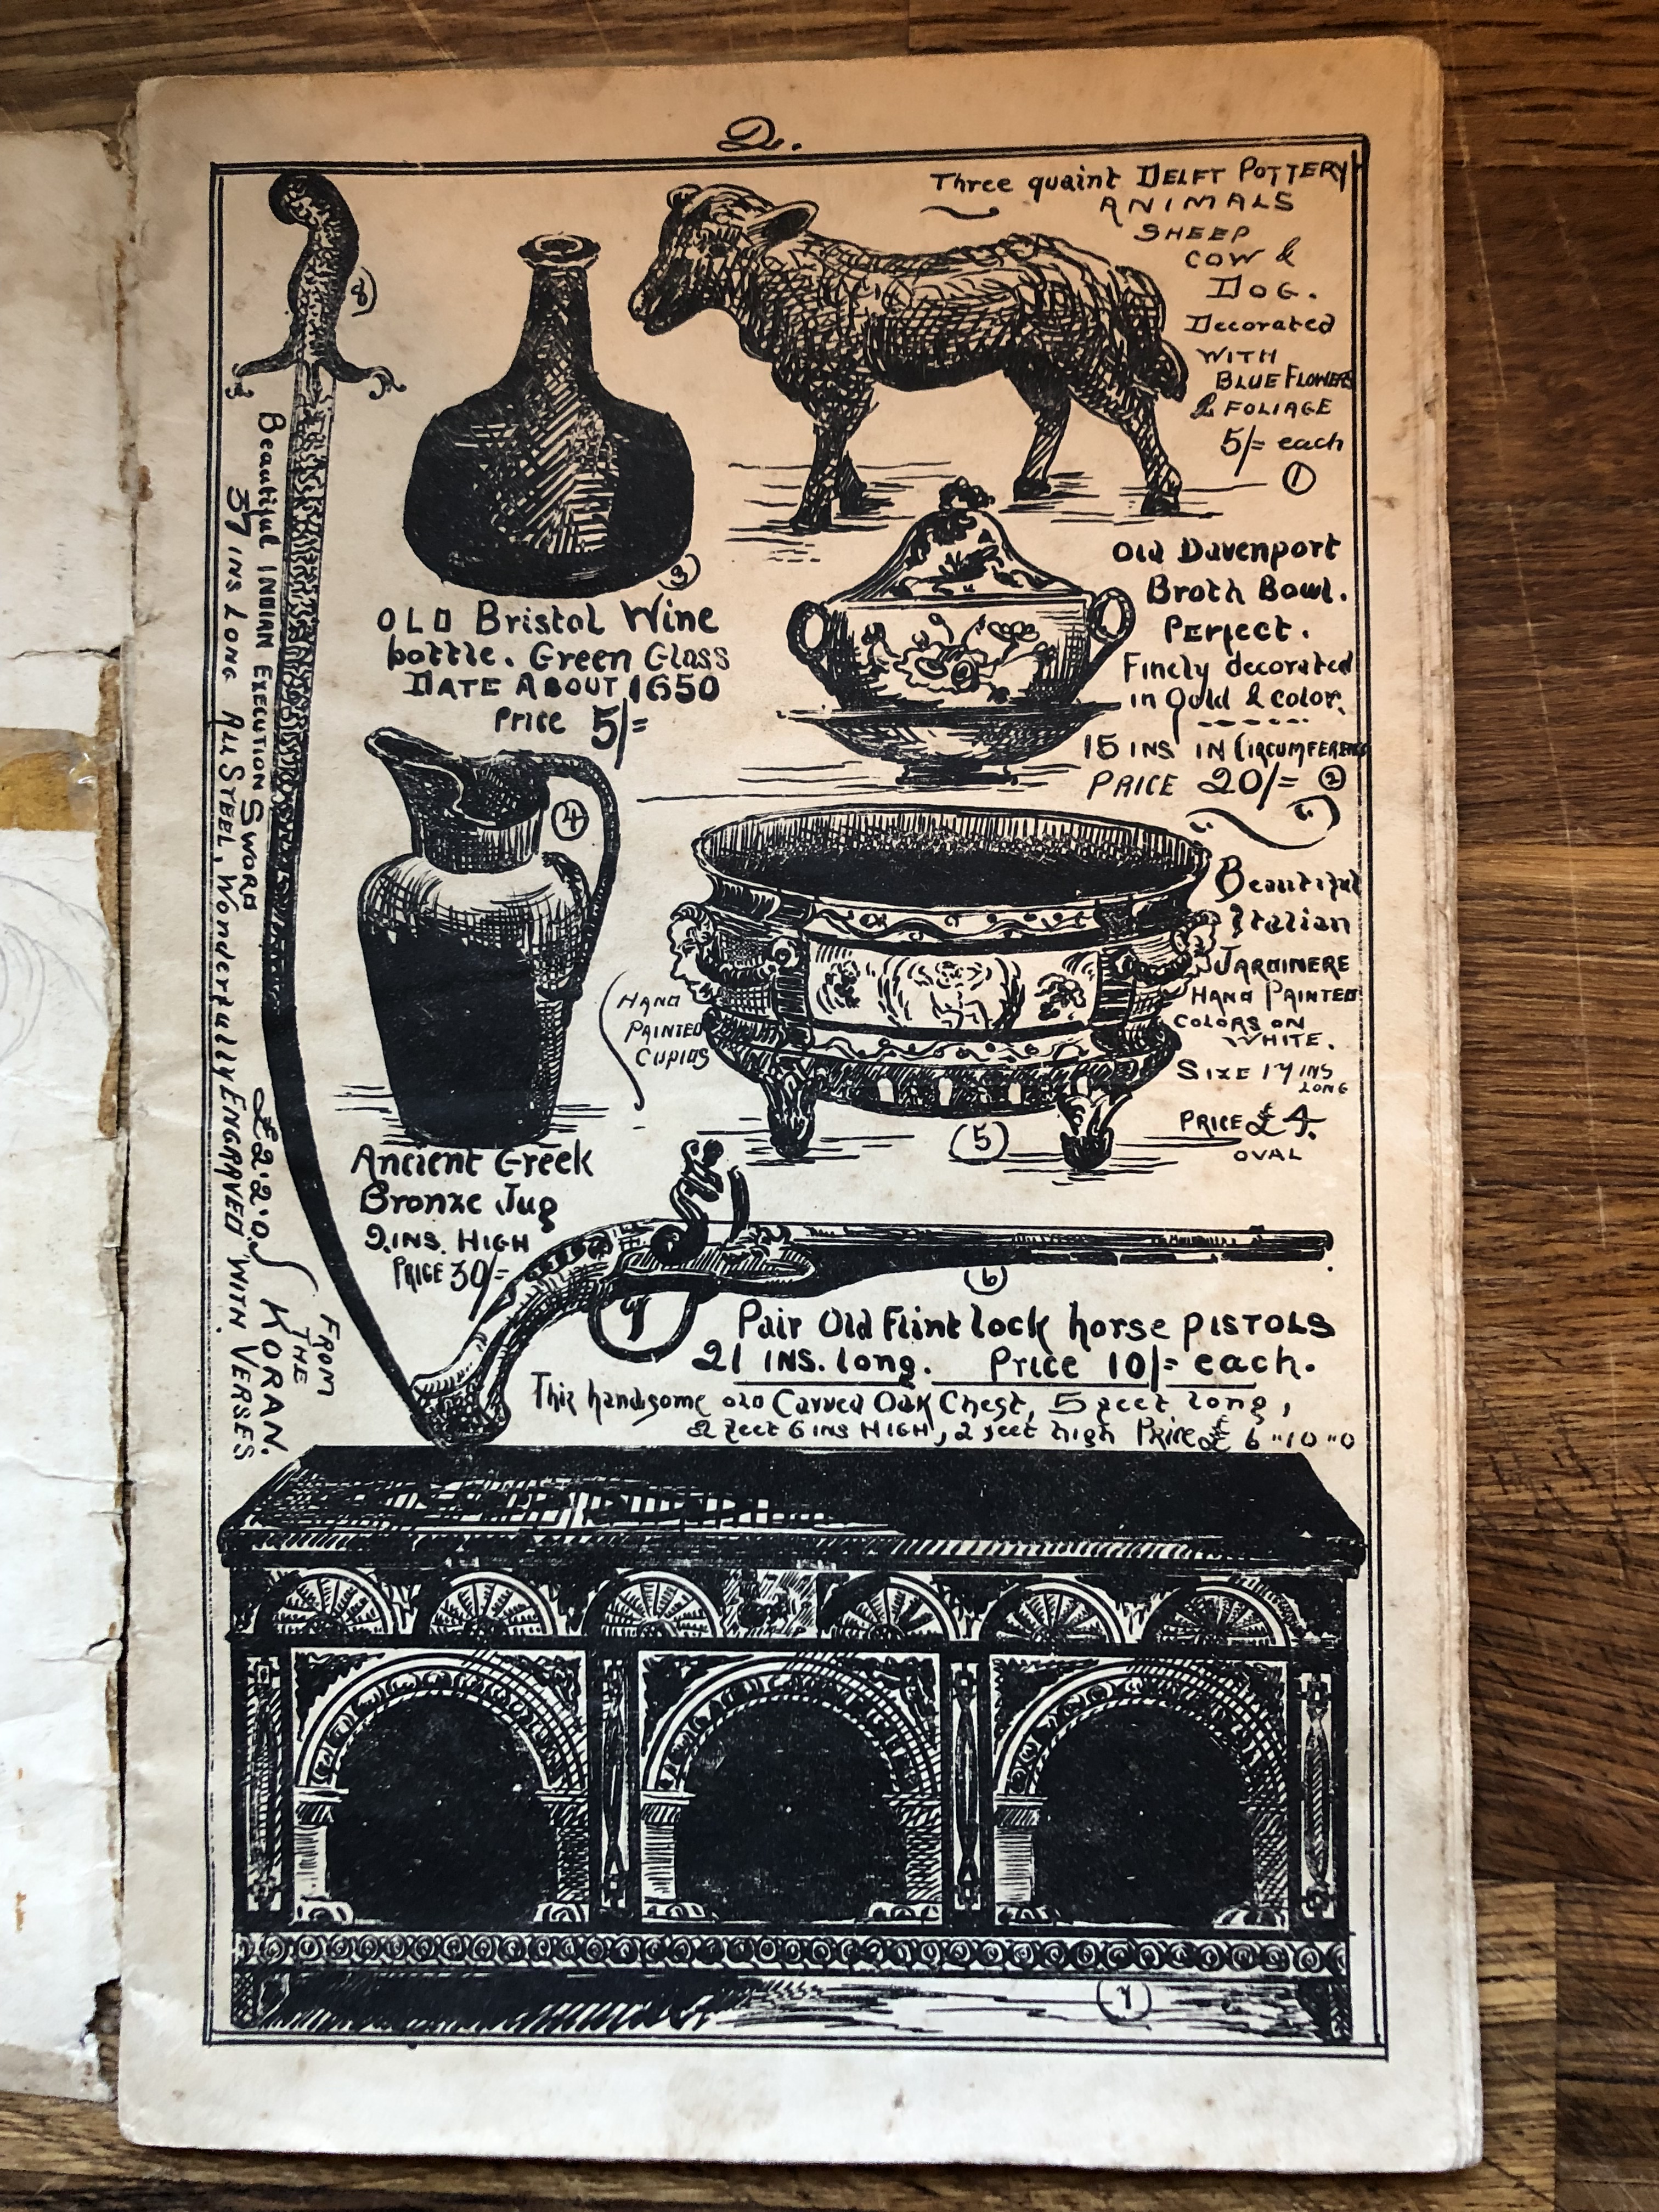 2.
Three quaint DELFT POTTERY
ANIMALS
SHEEP
COW &
DOG.
Decorated
WITH
BLUE FLOWERS
& FOLIAGE
5/= each
1
8
Beautiful INDIAN EXECUTION SWORD
37 INS LONG ALL STEEL, Wonderfully ENGRAVED WITH VERSES
£2.2.0.
FROM
THE
KORAN.
3
OLD Bristol Wine
bottle. Green Glass
DATE ABOUT 1650
Price 5/=
Old Davenport
Broth Bowl.
PERfect.
Finely decorated
in Gold & color.
15 INS IN CIRCUMFERENCE
PRICE 20/= 2
4
Ancient Greek
Bronze Jug
9.INS. HIGH
PRICE 30/=
HAND
PAINTED
CUPIDS
Beautiful
Italian
JARDINERE
HAND PAINTED
COLORS ON
WHITE.
SIZE 17 INS
LONG
PRICE £4.
OVAL
5
6
Pair Old Flint lock horse PISTOLS
21 INS. long. Price 10/= each.
This handsome old Carved Oak Chest, 5 feet long,
2 feet 6 INS HIGH, 2 feet high Price £6"10"0
7